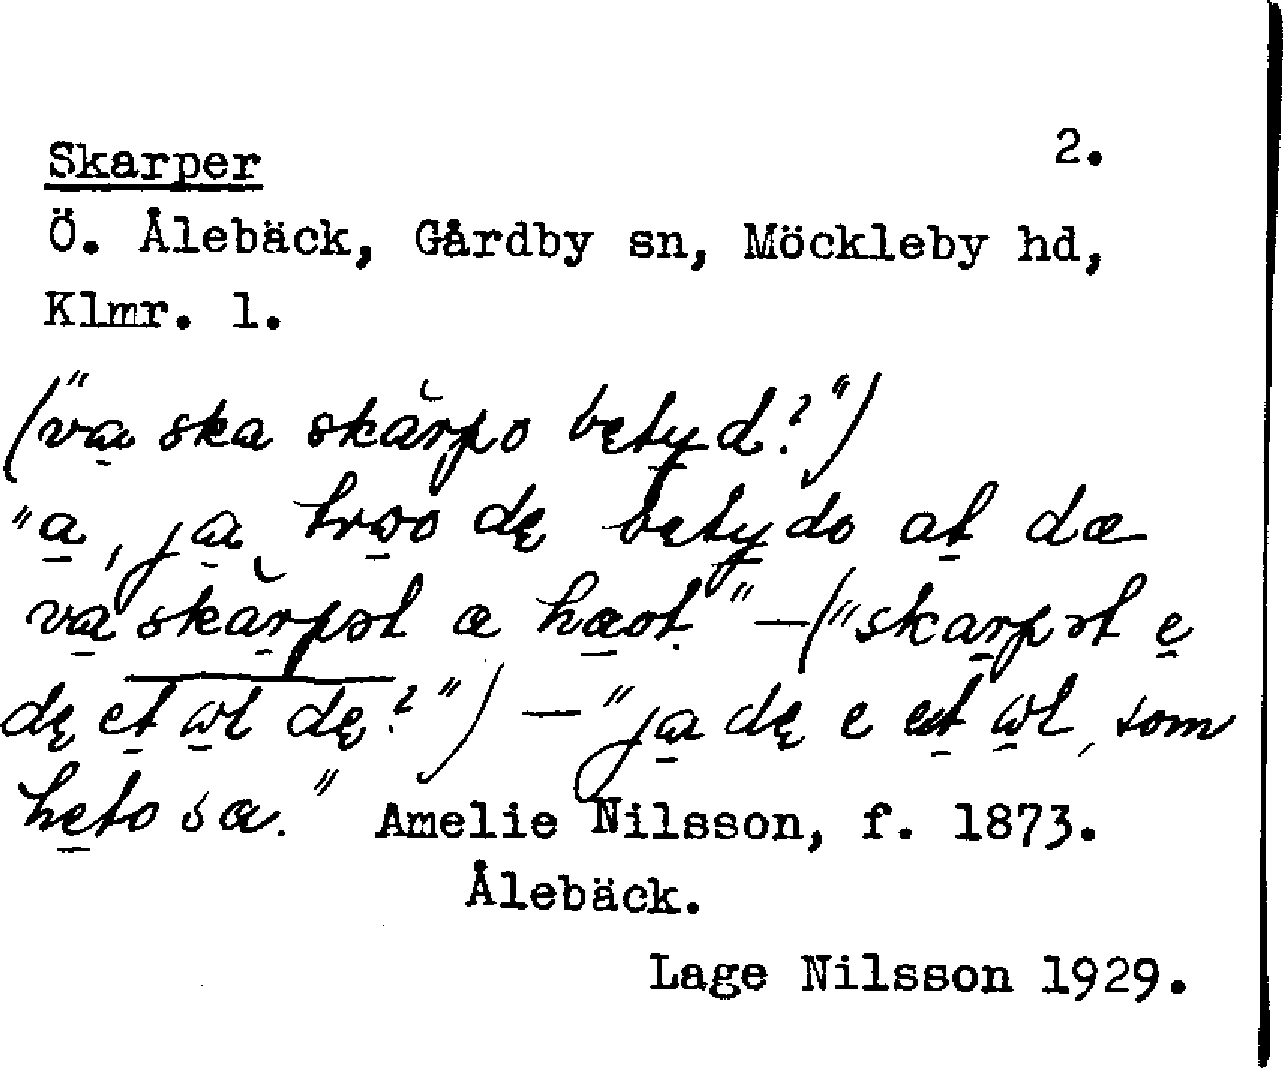 Skarper 2.
Ö. Ålebäck, Gårdby sn, Möckleby hd,
Klmr. l.
("va ska skărpo betyd?")
"a, ja, troo dę betydo at dæ
va skărpət æ hæst." — ("skarpət e
dę et ɷl dę?") — "ja dę e et ɷl, som
heto sa." Amelie Nilsson, f. 1873.
Ålebäck.
Lage Nilsson 1929.